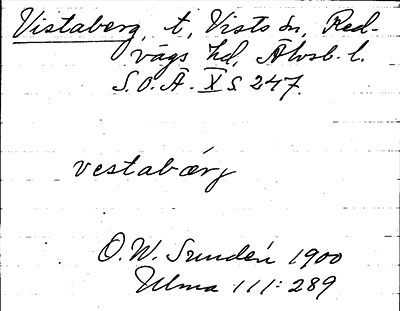 Vistaberg, t, Vists sn, Red-
vägs hd, Älvsb. l.
S.O.Ä. X s 247.
vestabærg
O.W. Sundén 1900
Ulma 111:289